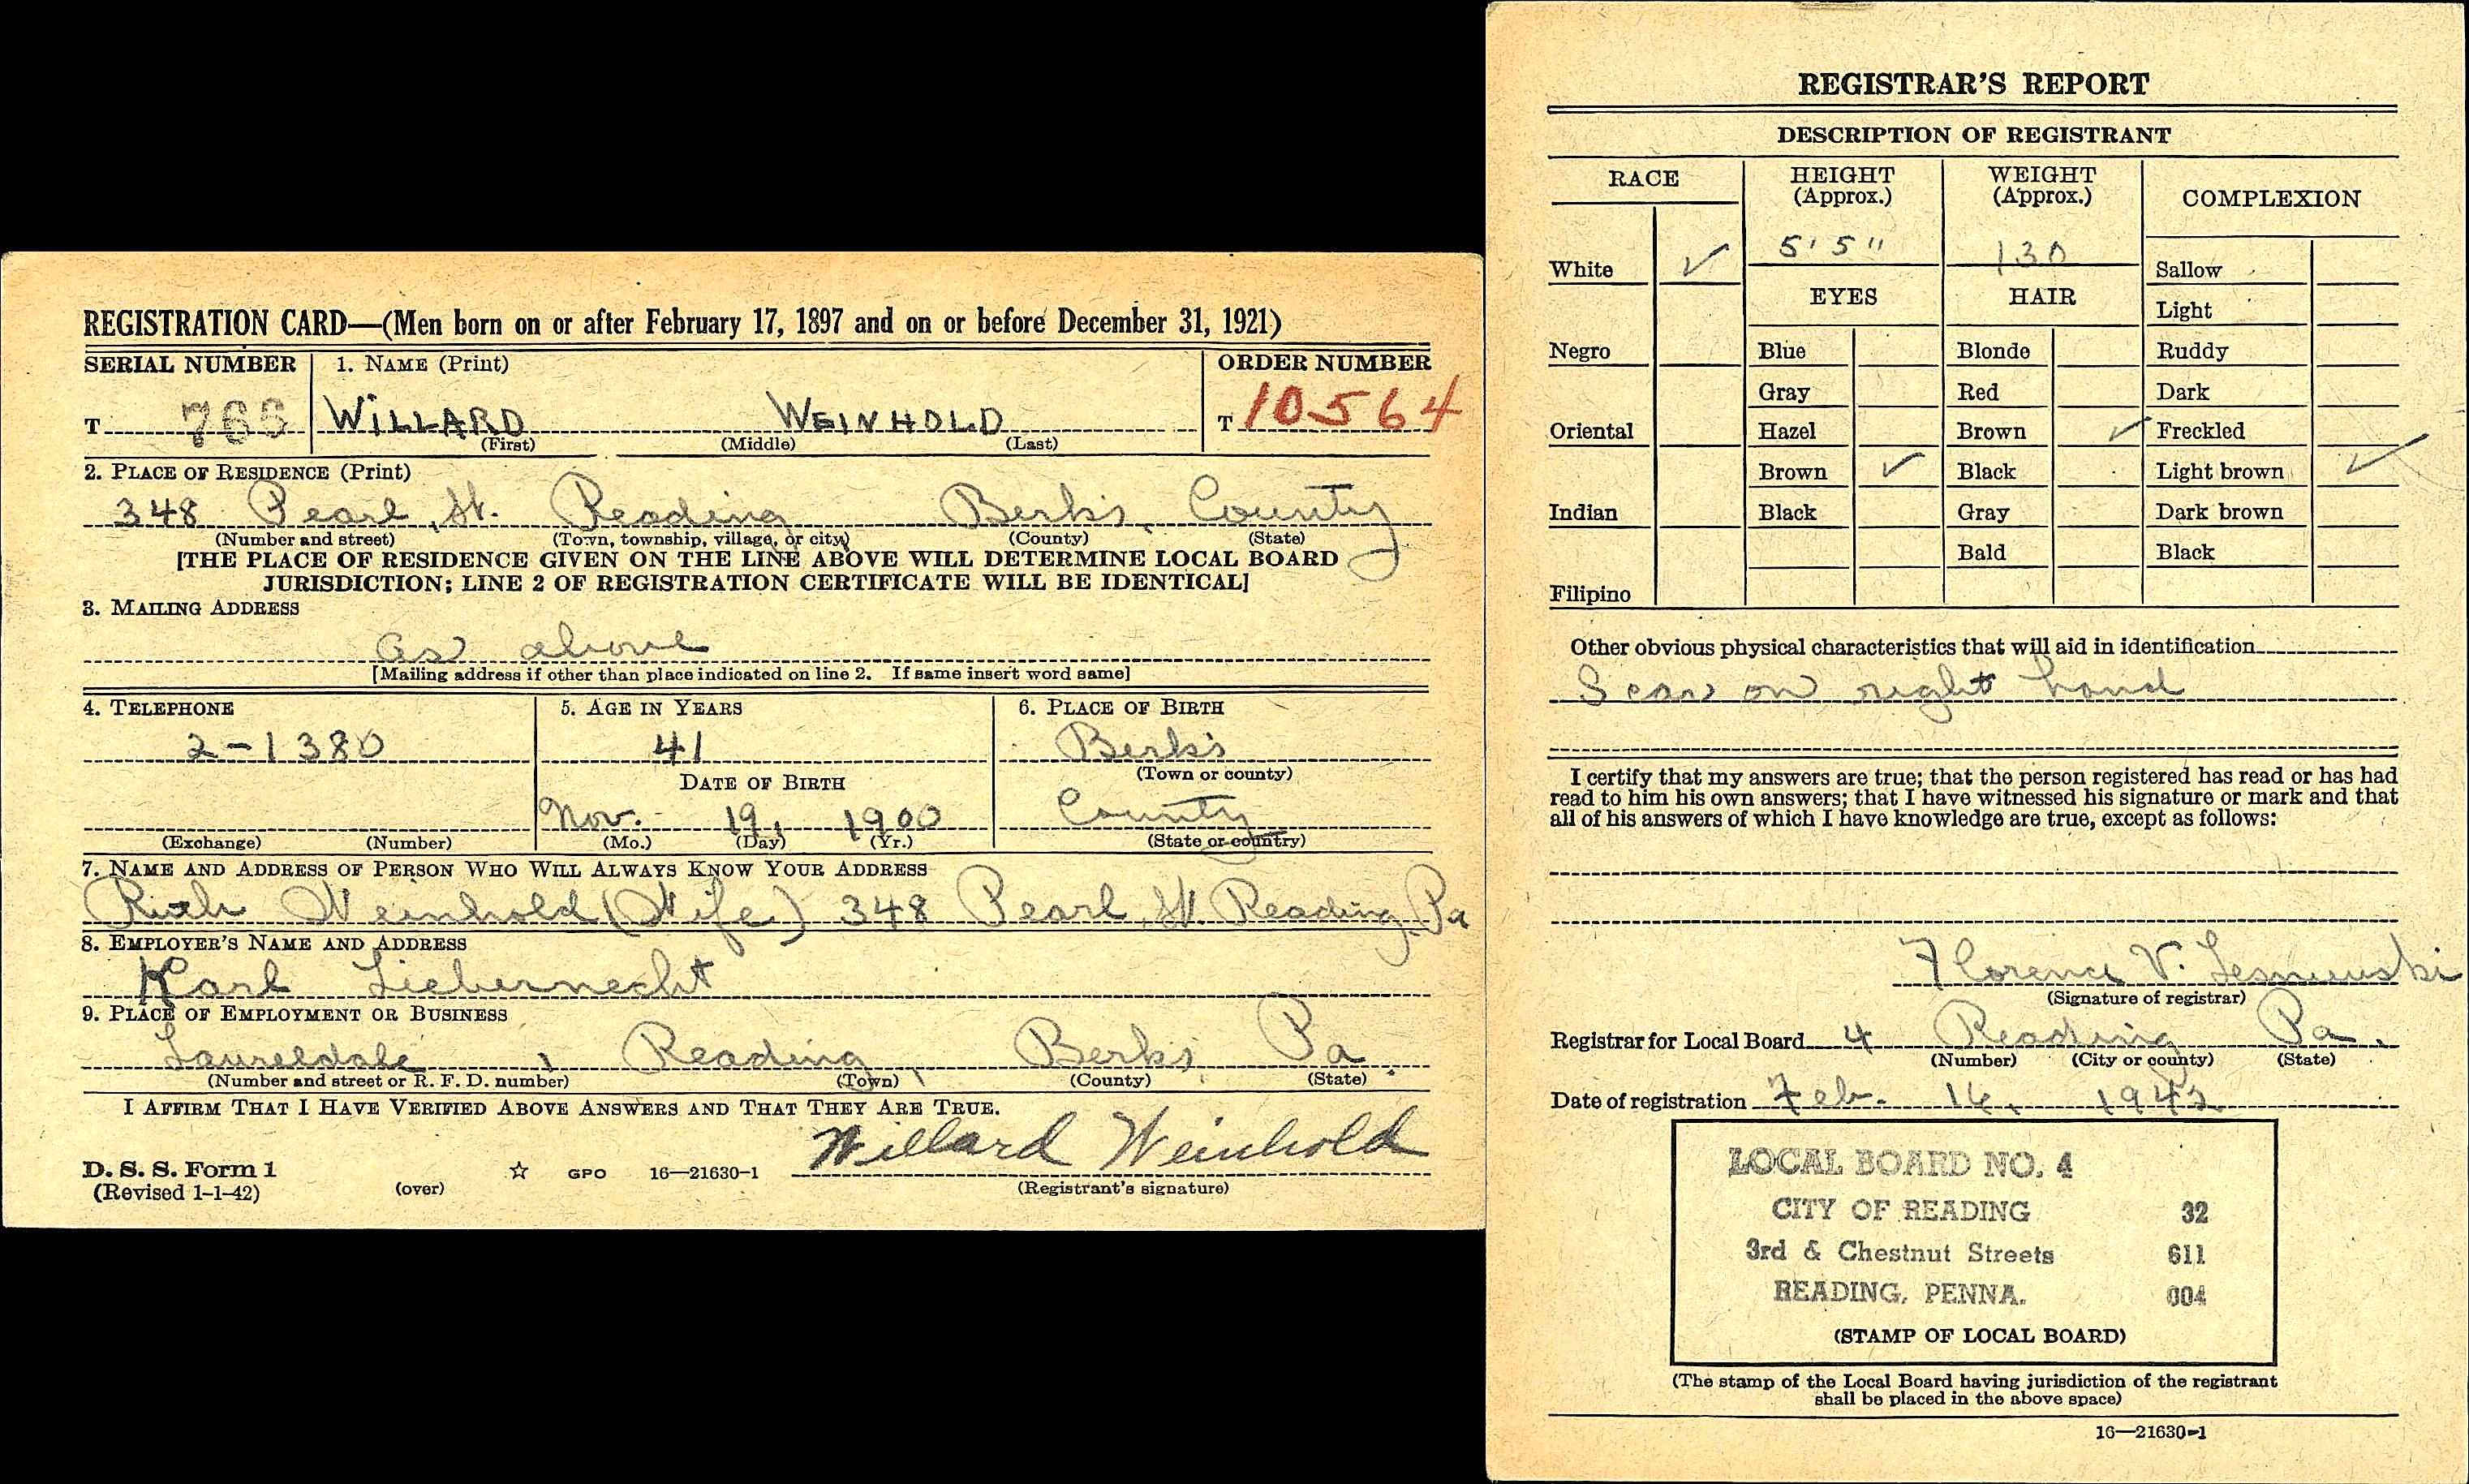 REGISTRATION CARD—(Men born on or after February 17, 1897 and on or before December 31, 1921)
SERIAL NUMBER 1. NAME (Print) ORDER NUMBER
T 766 WILLARD WEINHOLD T 10564
(First) (Middle) (Last)
2. PLACE OF RESIDENCE (Print)
348 Pearl St. Reading Berks County
(Number and street) (Town, township, village, or city) (County) (State)
[THE PLACE OF RESIDENCE GIVEN ON THE LINE ABOVE WILL DETERMINE LOCAL BOARD
JURISDICTION; LINE 2 OF REGISTRATION CERTIFICATE WILL BE IDENTICAL]
3. MAILING ADDRESS
As above
[Mailing address if other than place indicated on line 2. If same insert word same]
4. TELEPHONE 5. AGE IN YEARS 6. PLACE OF BIRTH
2-1380 41 Berks
(Town or county)
DATE OF BIRTH
Nov. 19, 1900 County
(Exchange) (Number) (Mo.) (Day) (Yr.) (State or country)
7. NAME AND ADDRESS OF PERSON WHO WILL ALWAYS KNOW YOUR ADDRESS
Ruth Weinhold (Wife) 348 Pearl St. Reading, Pa
8. EMPLOYER'S NAME AND ADDRESS
Karl Liebernecht
9. PLACE OF EMPLOYMENT OR BUSINESS
Laureldale, Reading, Berks, Pa.
(Number and street or R. F. D. number) (Town) (County) (State)
I AFFIRM THAT I HAVE VERIFIED ABOVE ANSWERS AND THAT THEY ARE TRUE.
Willard Weinhold
D. S. S. Form 1 ☆ GPO 16—21630-1
(Revised 1-1-42) (over) (Registrant's signature)
REGISTRAR'S REPORT
DESCRIPTION OF REGISTRANT
RACE HEIGHT (Approx.) WEIGHT (Approx.) COMPLEXION
White ✓ 5' 5" 130 Sallow
EYES HAIR Light
Negro Blue Blonde Ruddy
Gray Red Dark
Oriental Hazel Brown ✓ Freckled
Brown ✓ Black Light brown ✓
Indian Black Gray Dark brown
Bald Black
Filipino
Other obvious physical characteristics that will aid in identification
Scar on right hand
I certify that my answers are true; that the person registered has read or has had
read to him his own answers; that I have witnessed his signature or mark and that
all of his answers of which I have knowledge are true, except as follows:
Florence V.
(Signature of registrar)
Registrar for Local Board 4 Reading Pa.
(Number) (City or county) (State)
Date of registration Feb. 16, 1942
LOCAL BOARD NO. 4
CITY OF READING 32
3rd & Chestnut Streets 611
READING, PENNA. 004
(STAMP OF LOCAL BOARD)
(The stamp of the Local Board having jurisdiction of the registrant
shall be placed in the above space)
16—21630-1